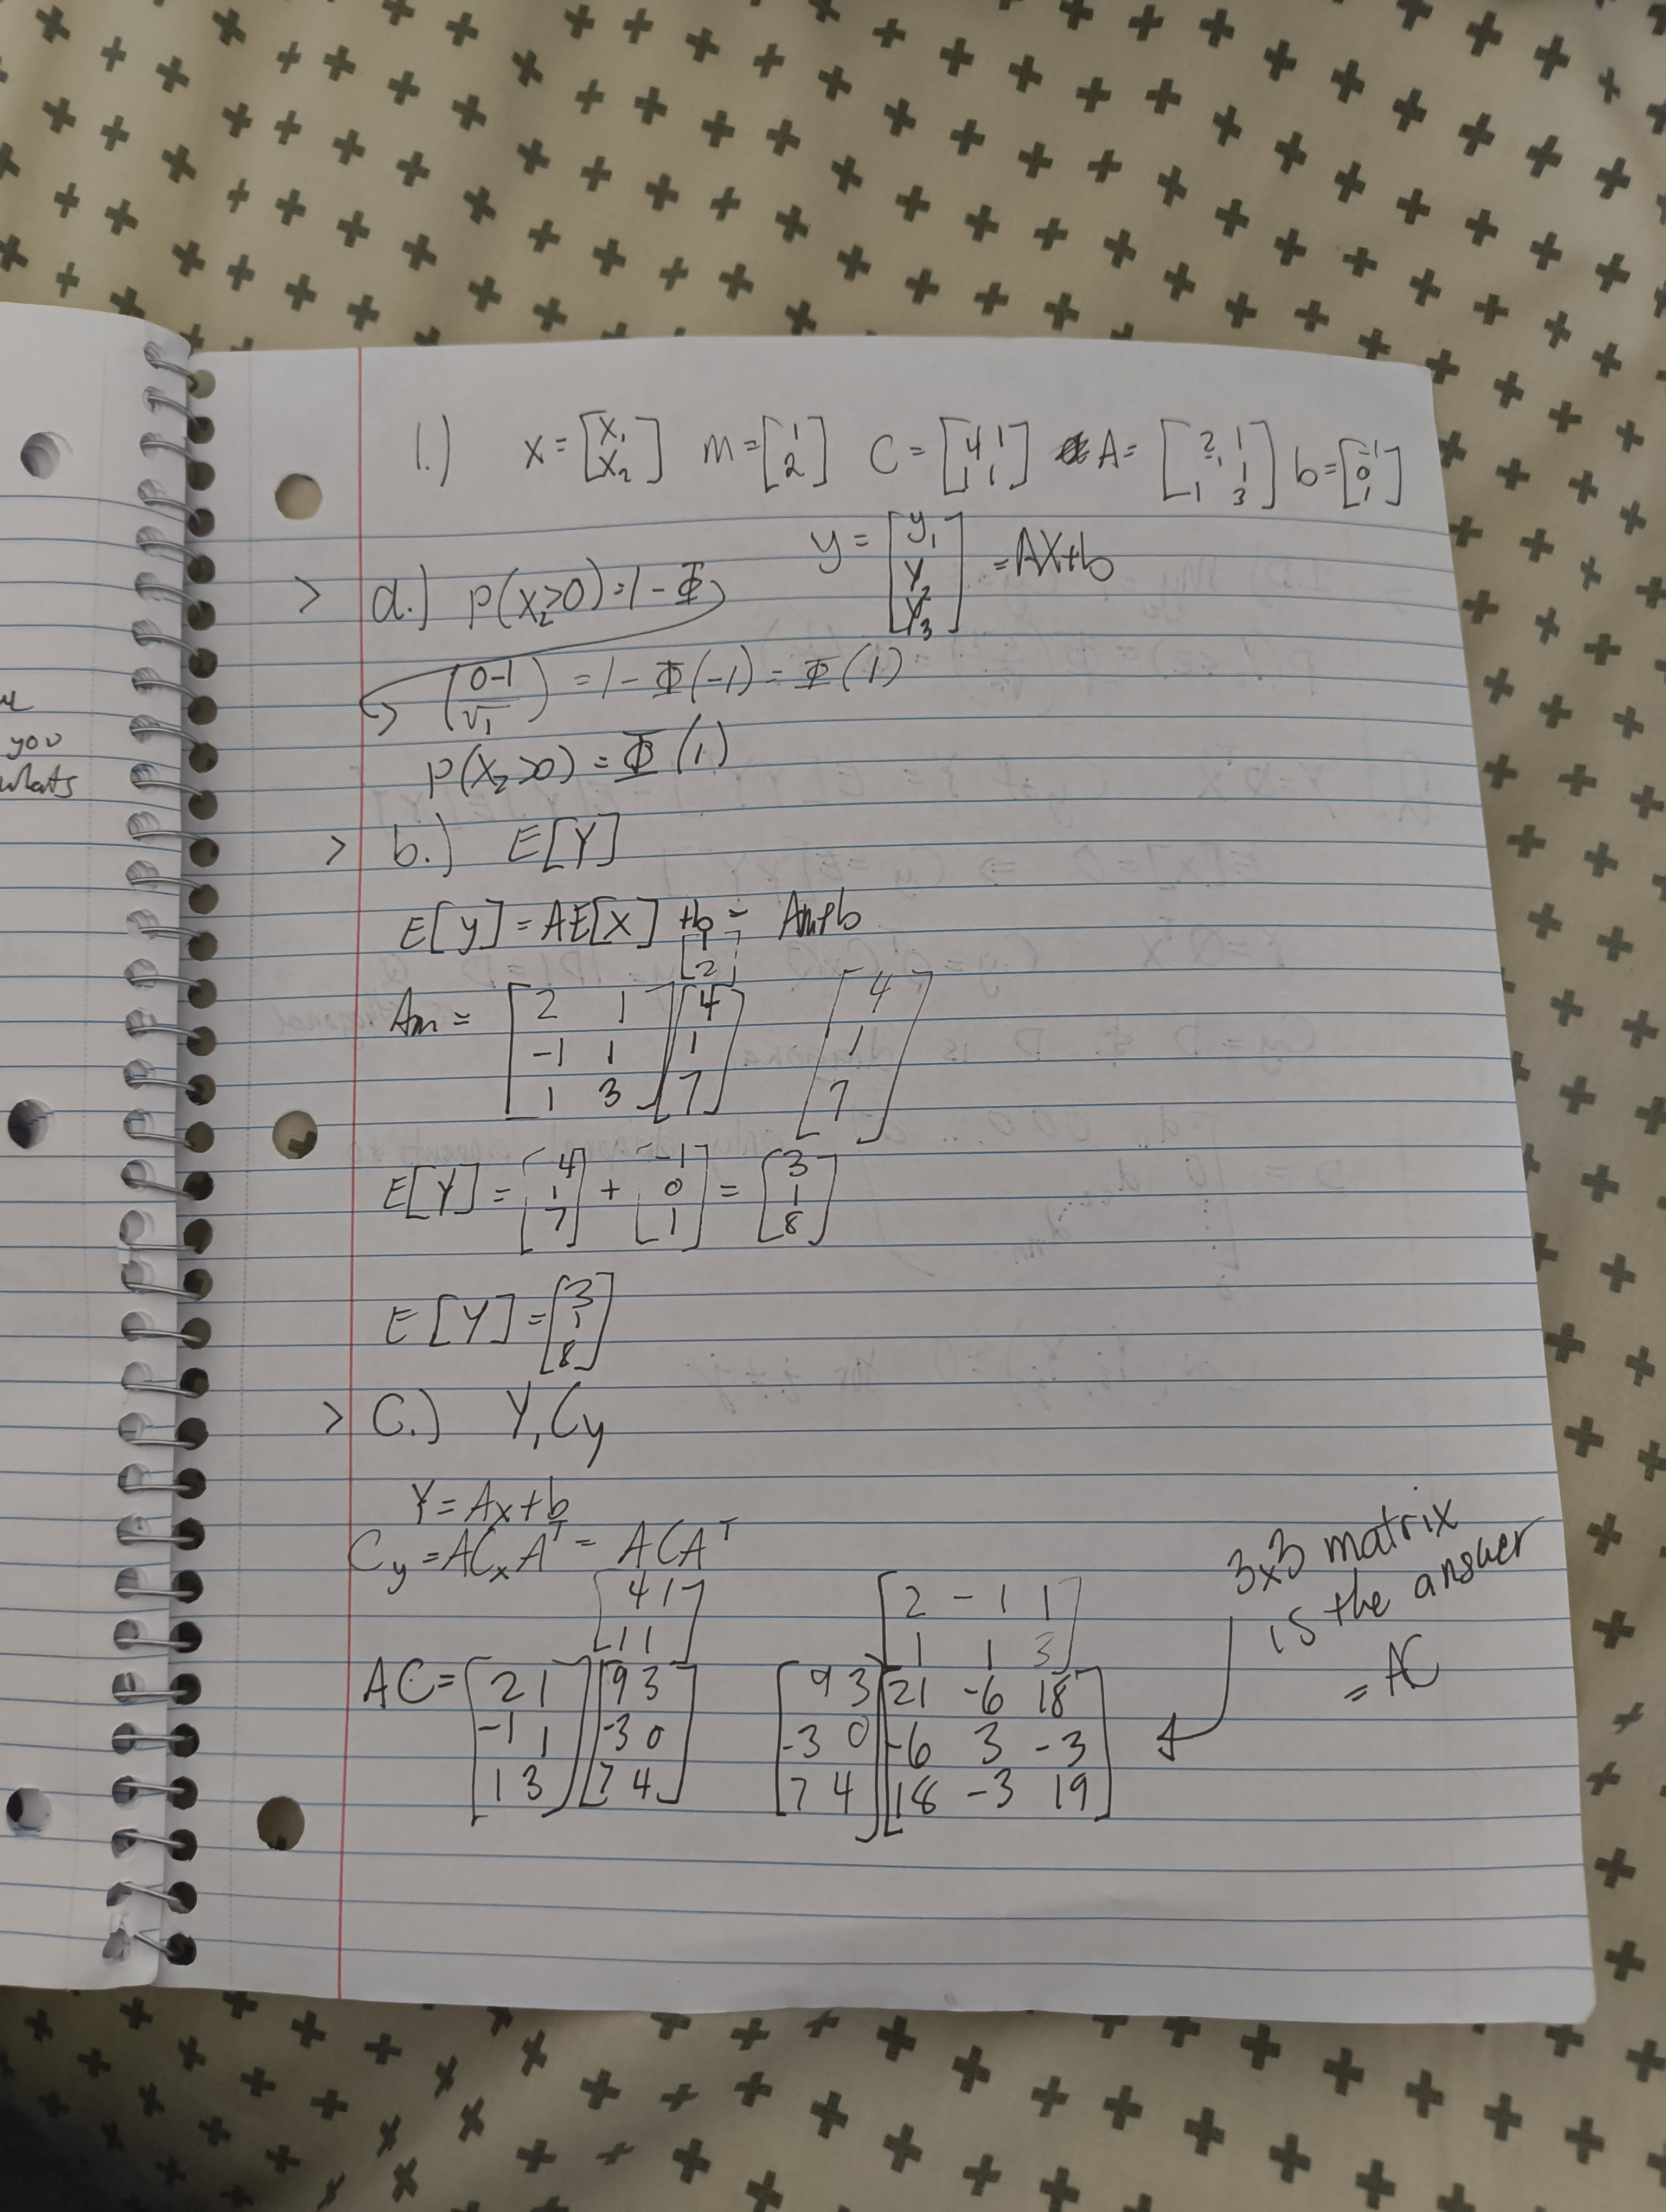 u
you
whats
1.) X = [X₁ X₂] m = [1 2] C = [4 1 1 1] A = [2 1 -1 1 1 3] b = [-1 0 1]
y = [y₁ Y₂ Y₃] = AX+b
> a.) P(X₂>0) = 1 - Φ
(0-1/√1) = 1 - Φ(-1) = Φ(1)
P(X₂>0) = Φ(1)
> b.) E[Y]
E[y] = AE[X] + b = Am+b
[1 2]
Am = [2 1 -1 1 1 3] [4 1 7] [4 1 7]
E[Y] = [4 1 7] + [-1 0 1] = [3 1 8]
E[Y] = [3 1 8]
> C.) Y, Cy
Y = Ax+b
Cy = ACxAᵀ = ACAᵀ
[4 1 1 1] [2 -1 1 1 1 3]
AC = [2 1 -1 1 1 3] [9 3 -3 0 7 4] [9 3 -3 0 7 4] [21 -6 18 -6 3 -3 18 -3 19]
3x3 matrix
is the answer
= AC